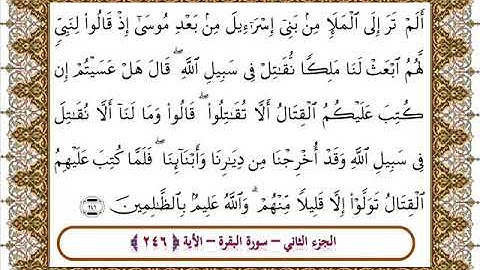 أَلَمْ تَرَ إِلَى ٱلْمَلَإِ مِنۢ بَنِىٓ إِسْرَٰٓءِيلَ مِنۢ بَعْدِ مُوسَىٰٓ إِذْ قَالُوا۟ لِنَبِىٍّ
لَّهُمُ ٱبْعَثْ لَنَا مَلِكًا نُّقَٰتِلْ فِى سَبِيلِ ٱللَّهِ ۖ قَالَ هَلْ عَسَيْتُمْ إِن
كُتِبَ عَلَيْكُمُ ٱلْقِتَالُ أَلَّا تُقَٰتِلُوا۟ ۖ قَالُوا۟ وَمَا لَنَآ أَلَّا نُقَٰتِلَ
فِى سَبِيلِ ٱللَّهِ وَقَدْ أُخْرِجْنَا مِن دِيَٰرِنَا وَأَبْنَآئِنَا ۖ فَلَمَّا كُتِبَ عَلَيْهِمُ
ٱلْقِتَالُ تَوَلَّوْا۟ إِلَّا قَلِيلًا مِّنْهُمْ ۗ وَٱللَّهُ عَلِيمٌۢ بِٱلظَّٰلِمِينَ ٢٤٦
الجزء الثاني – سورة البقرة – الأية ﴿ ٢٤٦ ﴾